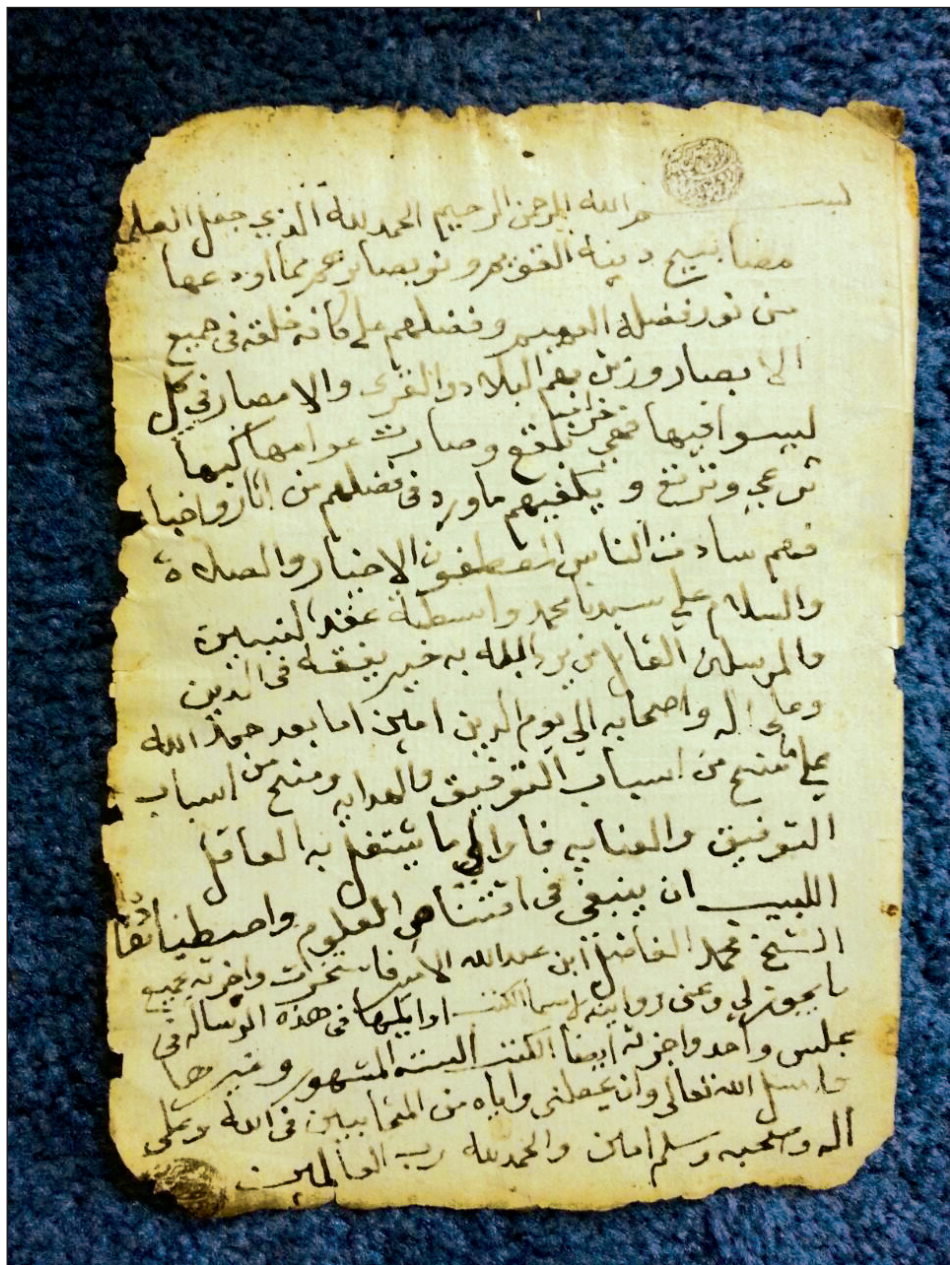 بسم الله الرحمن الرحيم الحمد لله الذي جعل العلما
مصابيح دينه القويم ونور بصايرهم بما اودعها
من نور فضله العميم وفضلهم على كافة خلقه في جميع
الابصار وزين بهم البلاد والقرى والامصار في كل
ليسوا فيها فهي خراب بلقع وصارت عوامها كبها
ترعى وترتع و يكفيهم ما ورد في فضلهم من اثار واخبا
فهم سادت الناس المصطفون الاخيار والصلاة
والسلام على سيدنا محمد واسطة عقد النبيين
والمرسلين القائل من يرد الله به خير يفقهه في الدين
وعلى اله واصحابه الي يوم الدين امين اما بعد حمد الله
على ما منح من اسباب التوفيق والهدايه ومنح من اسباب
التوفيق والعنايه فاوالي ما يشتغل به العاقل
اللبيب ان ينبغي في اقتنا العلوم واصطيا
الشيخ محمد الفاضل ابن عبد الله الامير فاستخرت واجزته بجميع
ما يجوز لي وعني روايته لاسيما الكتب اوايلها في هذه الرساله في
مجلس واحد واجزته ايضا الكتب الستة المشهور وغيرها
واسل الله تعالى وان يجعلني واياه من المتحابين في الله وعلى
اله وصحبه وسلم امين والحمد لله رب العالمين